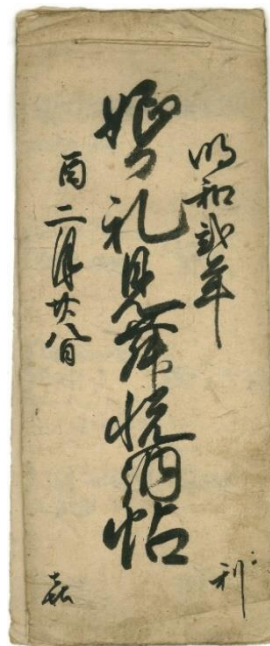 明和弐年
婚礼見舞悦納帖
酉二月廿八日
利